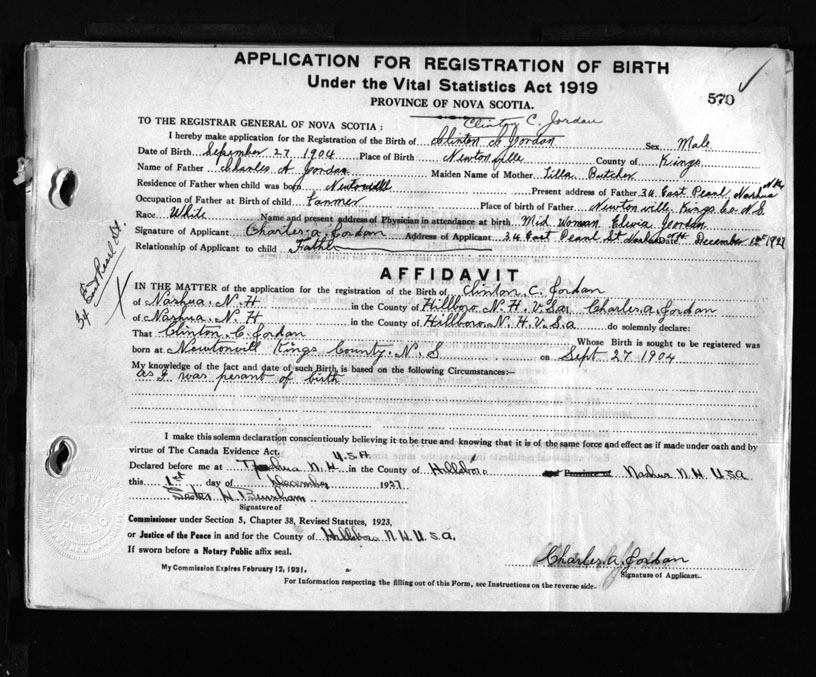 APPLICATION FOR REGISTRATION OF BIRTH
Under the Vital Statistics Act 1919
PROVINCE OF NOVA SCOTIA.
570
Clinton C. Jordan
TO THE REGISTRAR GENERAL OF NOVA SCOTIA:
I hereby make application for the Registration of the Birth of Clinton C Jordan Sex Male
Date of Birth September 27 1904 Place of Birth Newtonville County of Kings
Name of Father Charles A Jordan Maiden Name of Mother Lilla Butcher
Residence of Father when child was born Newtonville Present address of Father 34 East Pearl Nashua N H
Occupation of Father at Birth of child Farmer Place of birth of Father Newtonville Kings Co. N.S.
Race White Name and present address of Physician in attendance at birth Mid Woman Jordan
Signature of Applicant Charles. a. Jordan Address of Applicant 34 East Pearl St Nashua Date December 1st
Relationship of Applicant to child Father
34 East Pearl St.
AFFIDAVIT
IN THE MATTER of the application for the registration of the Birth of Clinton. C. Jordan
of Nashua. N. H in the County of Hillboro N. H. U. S. a. Charles. a. Jordan
of Nashua. N. H in the County of Hillboro. N. H. U. S. a do solemnly declare:
That Clinton. C. Jordan Whose Birth is sought to be registered was
born at Newtonvill Kings County. N. S on Sept 27 1904
My knowledge of the fact and date of such Birth is based on the following Circumstances:—
as I was pesant of birth
I make this solemn declaration conscientiously believing it to be true and knowing that it is of the same force and effect as if made under oath and by
virtue of The Canada Evidence Act.
U.S.A.
Declared before me at Nashua N. H. in the County of Hillsboro and Province of Nashua N. H. U S a
this 1st day of December 1927
H. Burnham
Signature of
Commissioner under Section 5, Chapter 38, Revised Statutes, 1923,
or Justice of the Peace in and for the County of Hillsboro N. H. U. S. a.
If sworn before a Notary Public affix seal.
NOTARY PUBLIC
Charles. a. Jordan
Signature of Applicant.
My Commission Expires February 12, 1931.
For Information respecting the filling out of this Form, see Instructions on the reverse side.